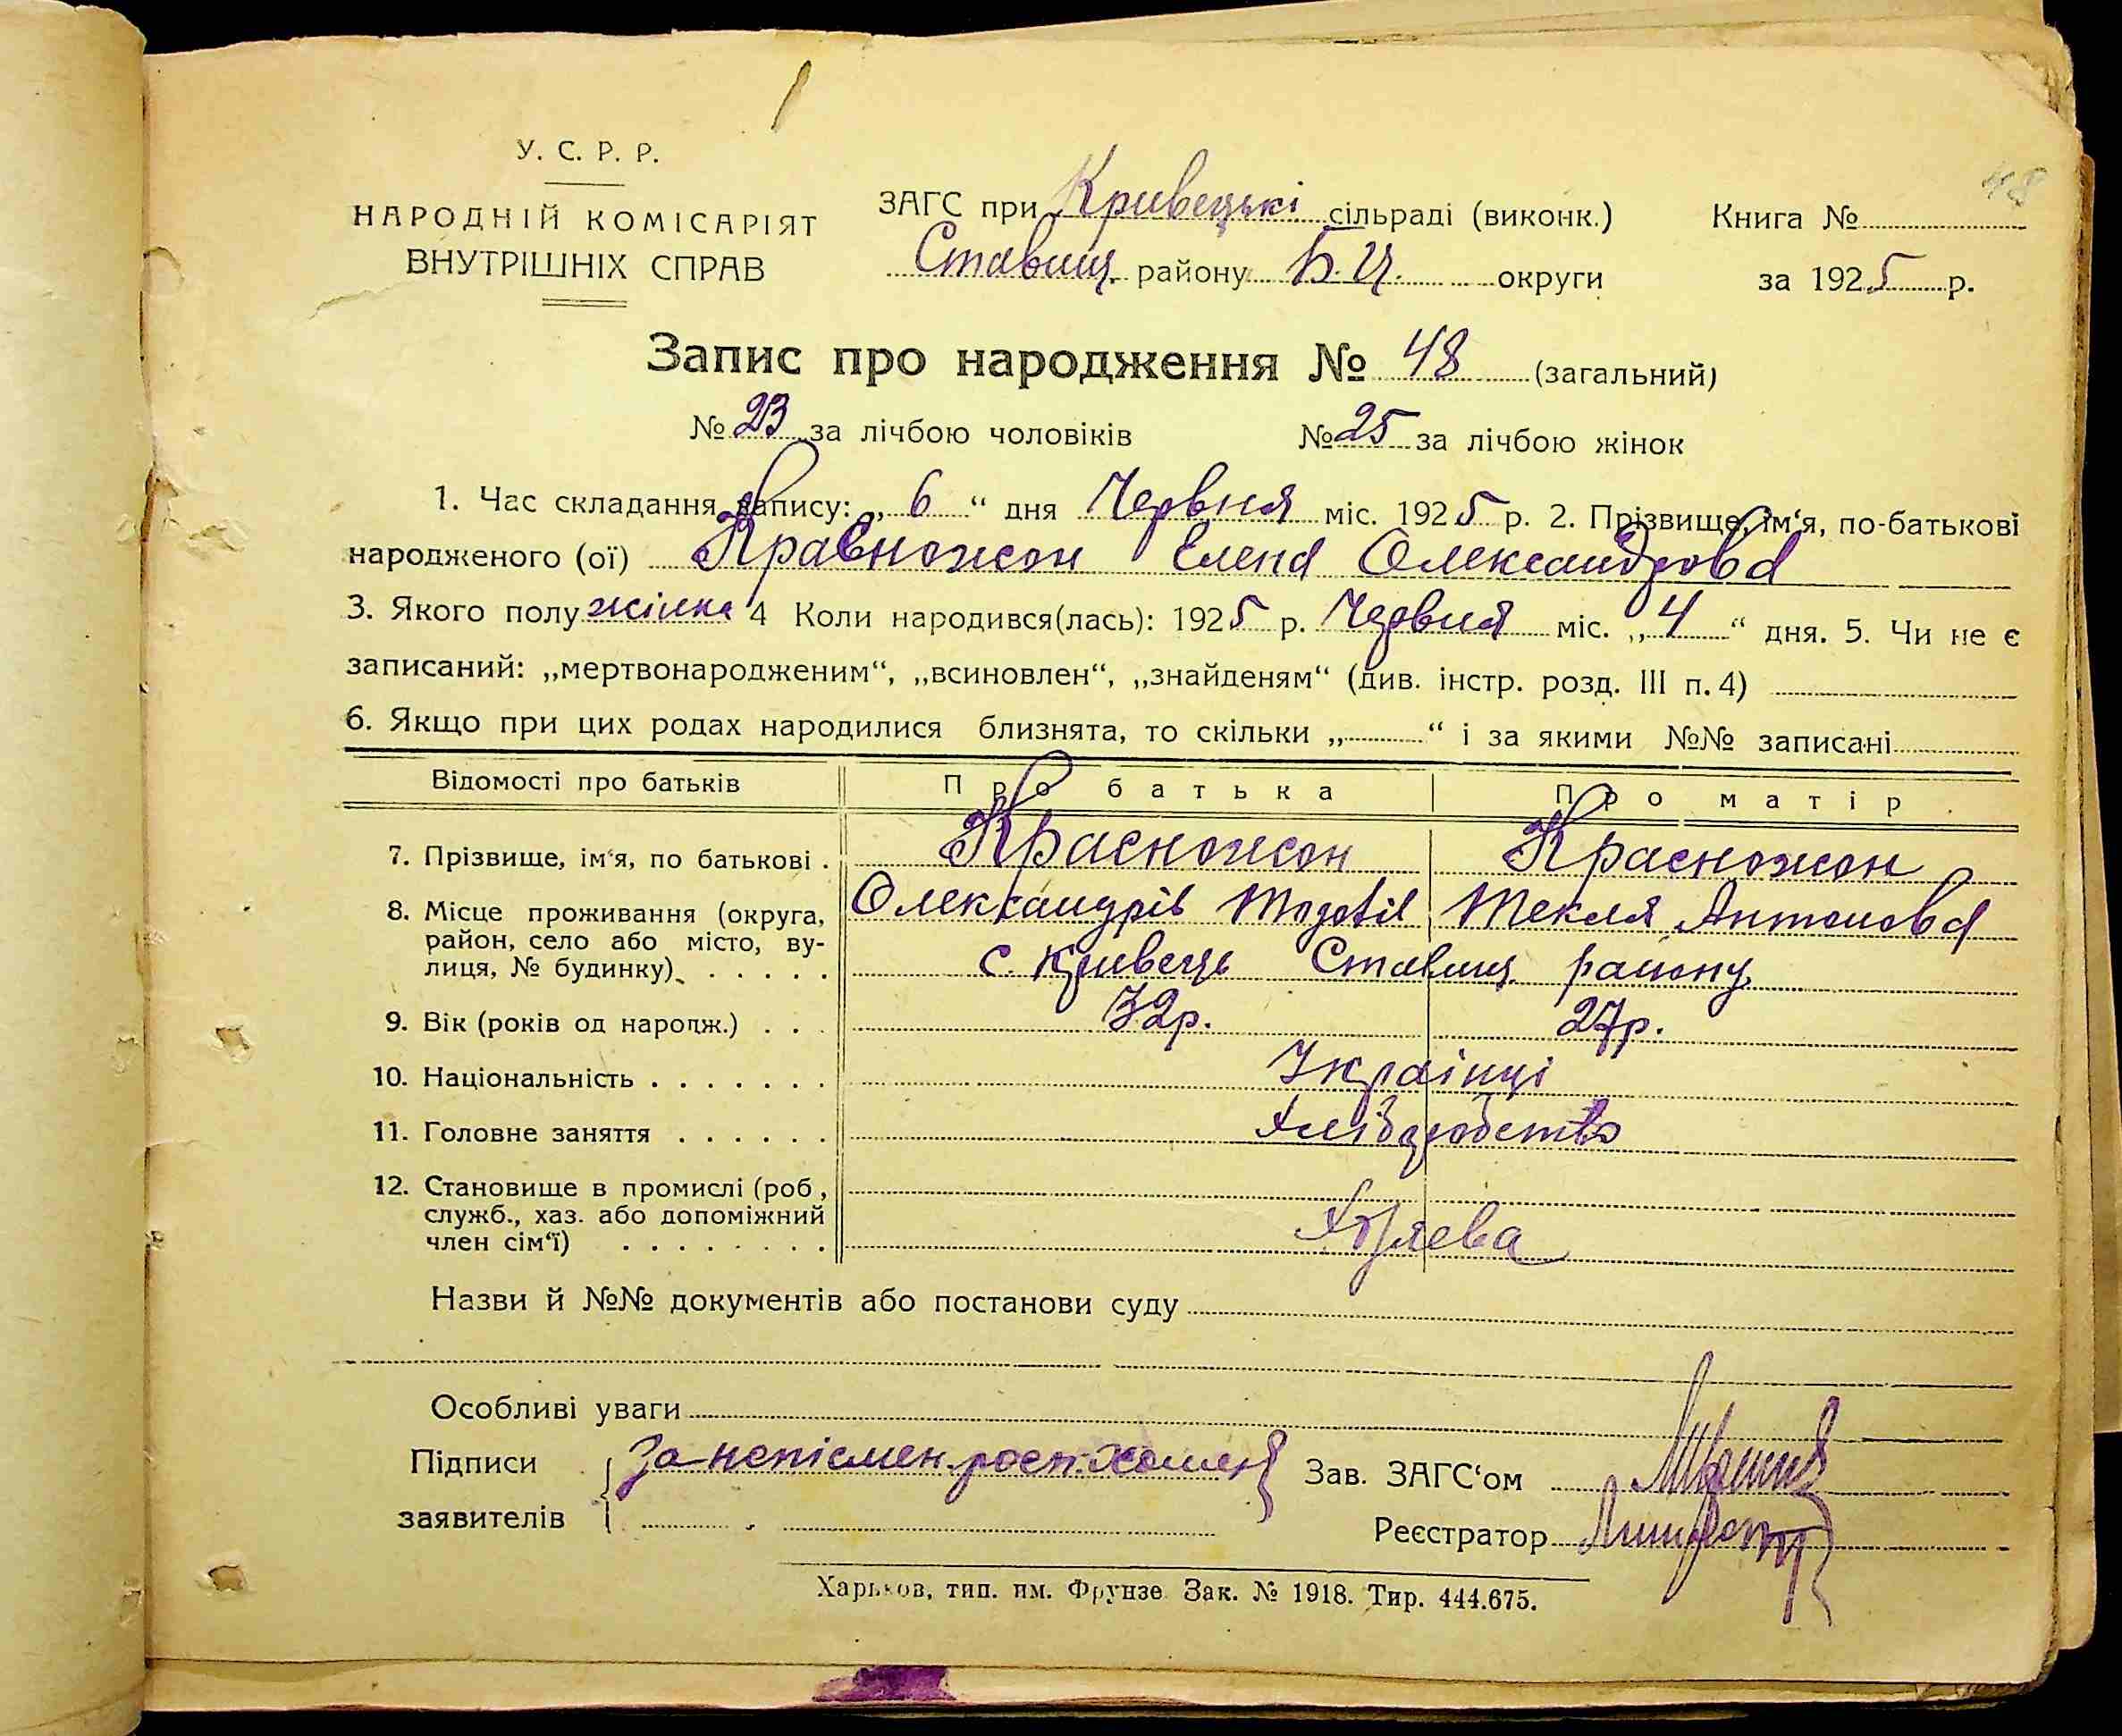 48
У. С. Р. Р.
НАРОДНІЙ КОМІСАРІЯТ
ВНУТРІШНІХ СПРАВ
ЗАГС при Кривецькі сільраді (виконк.)
Ставищ. району Б. Ц. округи
Книга №
за 1925 р.
Запис про народження № 48 (загальний)
№ 23 за лічбою чоловіків № 25 за лічбою жінок
1. Час складання запису: „ 6 “ дня Червня міс. 1925 р. 2. Прізвище, ім‘я, по-батькові
народженого (ої) Красножон Елена Олександровна
3. Якого полу жінка 4 Коли народився(лась): 1925 р. Червня міс. „ 4 “ дня. 5. Чи не є
записаний: „мертвонародженим“, „всиновлен“, „знайденям“ (див. інстр. розд. III п. 4)
6. Якщо при цих родах народилися близнята, то скільки „ “ і за якими №№ записані
Відомості про батьків Про батька Про матір
7. Прізвище, ім‘я, по батькові . Красножон Красножон
8. Місце проживання (округа, Олександрів Текля Антонова
район, село або місто, ву-
лиця, № будинку) . . . . . с. Кривець Ставищ. району
9. Вік (років од народж.) . . . 32р. 27р.
10. Національність . . . . . . . Українці
11. Головне заняття . . . . . . Хліборобство
12. Становище в промислі (роб,
служб., хаз. або допоміжний
член сім‘ї) . . . . . . . .
Назви й №№ документів або постанови суду
Особливі уваги
Підписи За неписмен. росп.
заявителів
Зав. ЗАГС‘ом
Реєстратор
Харьков, тип. им. Фрунзе. Зак. № 1918. Тир. 444.675.